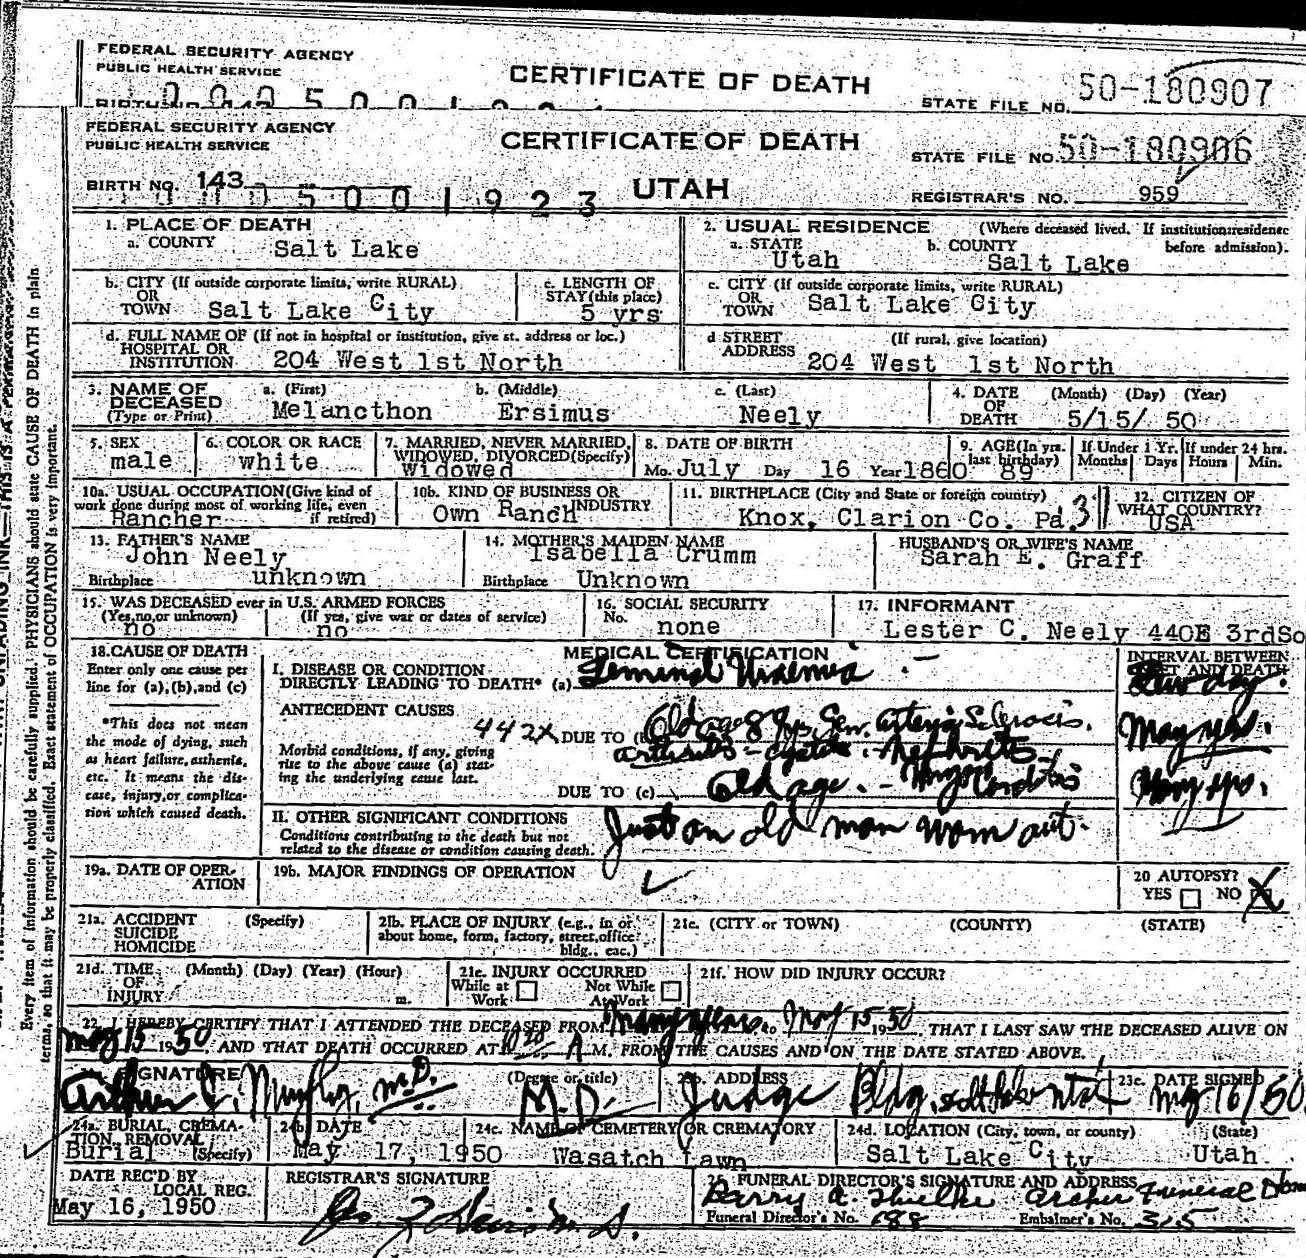 FEDERAL SECURITY AGENCY
PUBLIC HEALTH SERVICE
CERTIFICATE OF DEATH
STATE FILE NO. 50-180907
FEDERAL SECURITY AGENCY
PUBLIC HEALTH SERVICE
CERTIFICATE OF DEATH
STATE FILE NO. 50-180906
BIRTH NO. 143
5001923
UTAH
REGISTRAR'S NO. 959
1. PLACE OF DEATH
a. COUNTY Salt Lake
2. USUAL RESIDENCE (Where deceased lived. If institution: residence before admission).
a. STATE Utah b. COUNTY Salt Lake
b. CITY (If outside corporate limits, write RURAL) OR TOWN Salt Lake City
c. LENGTH OF STAY (this place) 5 yrs
c. CITY (If outside corporate limits, write RURAL) OR TOWN Salt Lake City
d. FULL NAME OF (If not in hospital or institution, give st. address or loc.) HOSPITAL OR INSTITUTION 204 West 1st North
d STREET ADDRESS (If rural, give location) 204 West 1st North
3. NAME OF DECEASED (Type or Print)
a. (First) Melancthon
b. (Middle) Ersimus
c. (Last) Neely
4. DATE OF DEATH (Month) (Day) (Year) 5/15/ 50
5. SEX male
6. COLOR OR RACE white
7. MARRIED, NEVER MARRIED, WIDOWED, DIVORCED (Specify) Widowed
8. DATE OF BIRTH Mo. July Day 16 Year 1860
9. AGE (In yrs. last birthday) 89
If Under 1 Yr. Months Days
If under 24 hrs. Hours Min.
10a. USUAL OCCUPATION (Give kind of work done during most of working life, even if retired) Rancher
10b. KIND OF BUSINESS OR INDUSTRY Own Ranch
11. BIRTHPLACE (City and State or foreign country) Knox, Clarion Co. Pa. 31
12. CITIZEN OF WHAT COUNTRY? USA
13. FATHER'S NAME John Neely
Birthplace unknown
14. MOTHER'S MAIDEN NAME Isabella Crumm
Birthplace Unknown
HUSBAND'S OR WIFE'S NAME Sarah E. Graff
15. WAS DECEASED ever in U.S. ARMED FORCES
(Yes, no, or unknown) no (If yes, give war or dates of service) no
16. SOCIAL SECURITY No. none
17. INFORMANT
Lester C. Neely 440E 3rdSo
18. CAUSE OF DEATH
Enter only one cause per line for (a), (b), and (c)
*This does not mean the mode of dying, such as heart failure, asthenia, etc. It means the disease, injury, or complication which caused death.
MEDICAL CERTIFICATION
INTERVAL BETWEEN ONSET AND DEATH
I. DISEASE OR CONDITION DIRECTLY LEADING TO DEATH* (a) Terminal Uraemia
Few days.
ANTECEDENT CAUSES
442X DUE TO (b) Old age 89 yrs, Gen. arterio Sclerosis.
Many yrs.
Arthritis - - Nephritis
Morbid conditions, if any, giving rise to the above cause (a) stating the underlying cause last.
DUE TO (c) Old age. -
Many yrs.
II. OTHER SIGNIFICANT CONDITIONS
Conditions contributing to the death but not related to the disease or condition causing death.
Just an old man worn out.
19a. DATE OF OPERATION
19b. MAJOR FINDINGS OF OPERATION
20 AUTOPSY? YES NO X
21a. ACCIDENT SUICIDE HOMICIDE (Specify)
21b. PLACE OF INJURY (e.g., in or about home, form, factory, street, office bldg., eac.)
21c. (CITY or TOWN) (COUNTY) (STATE)
21d. TIME OF INJURY (Month) (Day) (Year) (Hour) m.
21e. INJURY OCCURRED While at Work Not While At Work
21f. HOW DID INJURY OCCUR?
22. I HEREBY CERTIFY THAT I ATTENDED THE DECEASED FROM Many years to May 15 1950, THAT I LAST SAW THE DECEASED ALIVE ON
May 15 1950 AND THAT DEATH OCCURRED AT A M. FROM THE CAUSES AND ON THE DATE STATED ABOVE.
SIGNATURE Arthur M.D.
(Degree or title) M.D.
23b. ADDRESS Judge Bldg. Salt Lake
23c. DATE SIGNED May 16/50
24a. BURIAL, CREMATION, REMOVAL (Specify) Burial
24b. DATE May 17, 1950
24c. NAME OF CEMETERY OR CREMATORY Wasatch Lawn
24d. LOCATION (City, town, or county) (State) Salt Lake City Utah
DATE REC'D BY LOCAL REG. May 16, 1950
REGISTRAR'S SIGNATURE
25. FUNERAL DIRECTOR'S SIGNATURE AND ADDRESS
Barry A. Funeral Home
Funeral Director's No. 188 Embalmer's No. 315
Every item of information should be carefully supplied. PHYSICIANS should state CAUSE OF DEATH in plain
terms, so that it may be properly classified. Exact statement of OCCUPATION is very important.